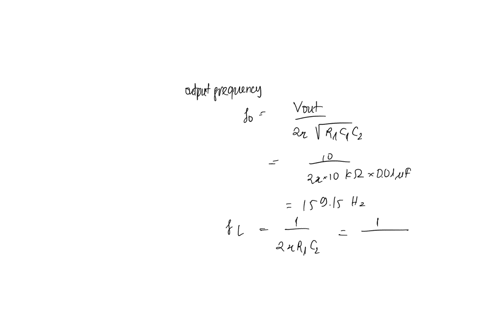 output frequency
fo = Vout / 2π √R1C1C2
= 10 / 2π×10 kΩ × 0.01 μF
= 159.15 Hz
fL = 1 / 2πR1C2 = 1 /